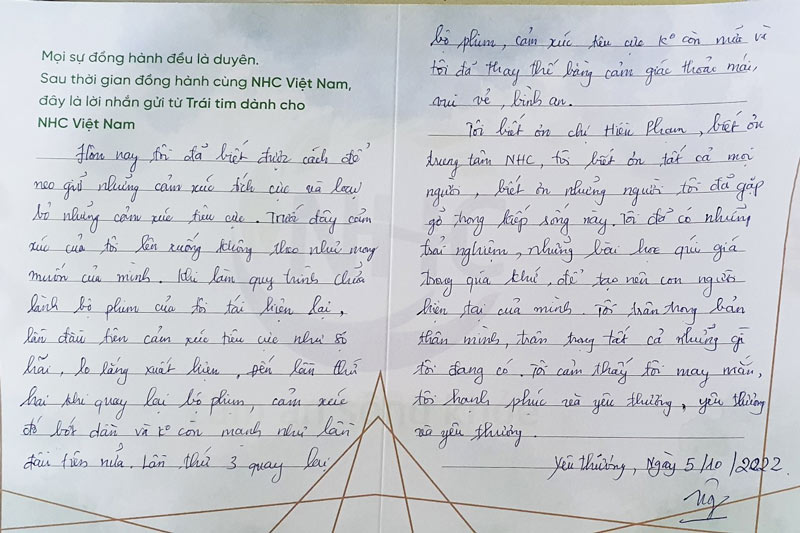 Mọi sự đồng hành đều là duyên.
Sau thời gian đồng hành cùng NHC Việt Nam,
đây là lời nhắn gửi từ Trái tim dành cho
NHC Việt Nam
Hôm nay tôi đã biết được cách để
neo giữ những cảm xúc tích cực và loại
bỏ những cảm xúc tiêu cực. Trước đây cảm
xúc của tôi lên xuống không theo như mong
muốn của mình. Khi làm quy trình chữa
lành bộ phim của tôi tái hiện lại,
lần đầu tiên cảm xúc tiêu cực như sợ
hãi, lo lắng xuất hiện, đến lần thứ
hai khi quay lại bộ phim, cảm xúc
đó bớt dần và k° còn mạnh như lần
đầu tiên nữa. Lần thứ 3 quay lại
bộ phim, cảm xúc tiêu cực k° còn nữa vì
tôi đã thay thế bằng cảm giác thoải mái,
vui vẻ, bình an.
Tôi biết ơn chị Hiệu Phạm, biết ơn
trung tâm NHC, tôi biết ơn tất cả mọi
người, biết ơn những người tôi đã gặp
gỡ trong kiếp sống này. Tôi đã có những
trải nghiệm, những bài học quí giá
trong quá khứ, để tạo nên con người
hiện tại của mình. Tôi trân trọng bản
thân mình, trân trọng tất cả những gì
tôi đang có. Tôi cảm thấy tôi may mắn,
tôi hạnh phúc và yêu thương, yêu thương
và yêu thương.
Yêu thương, Ngày 5/10/2022.